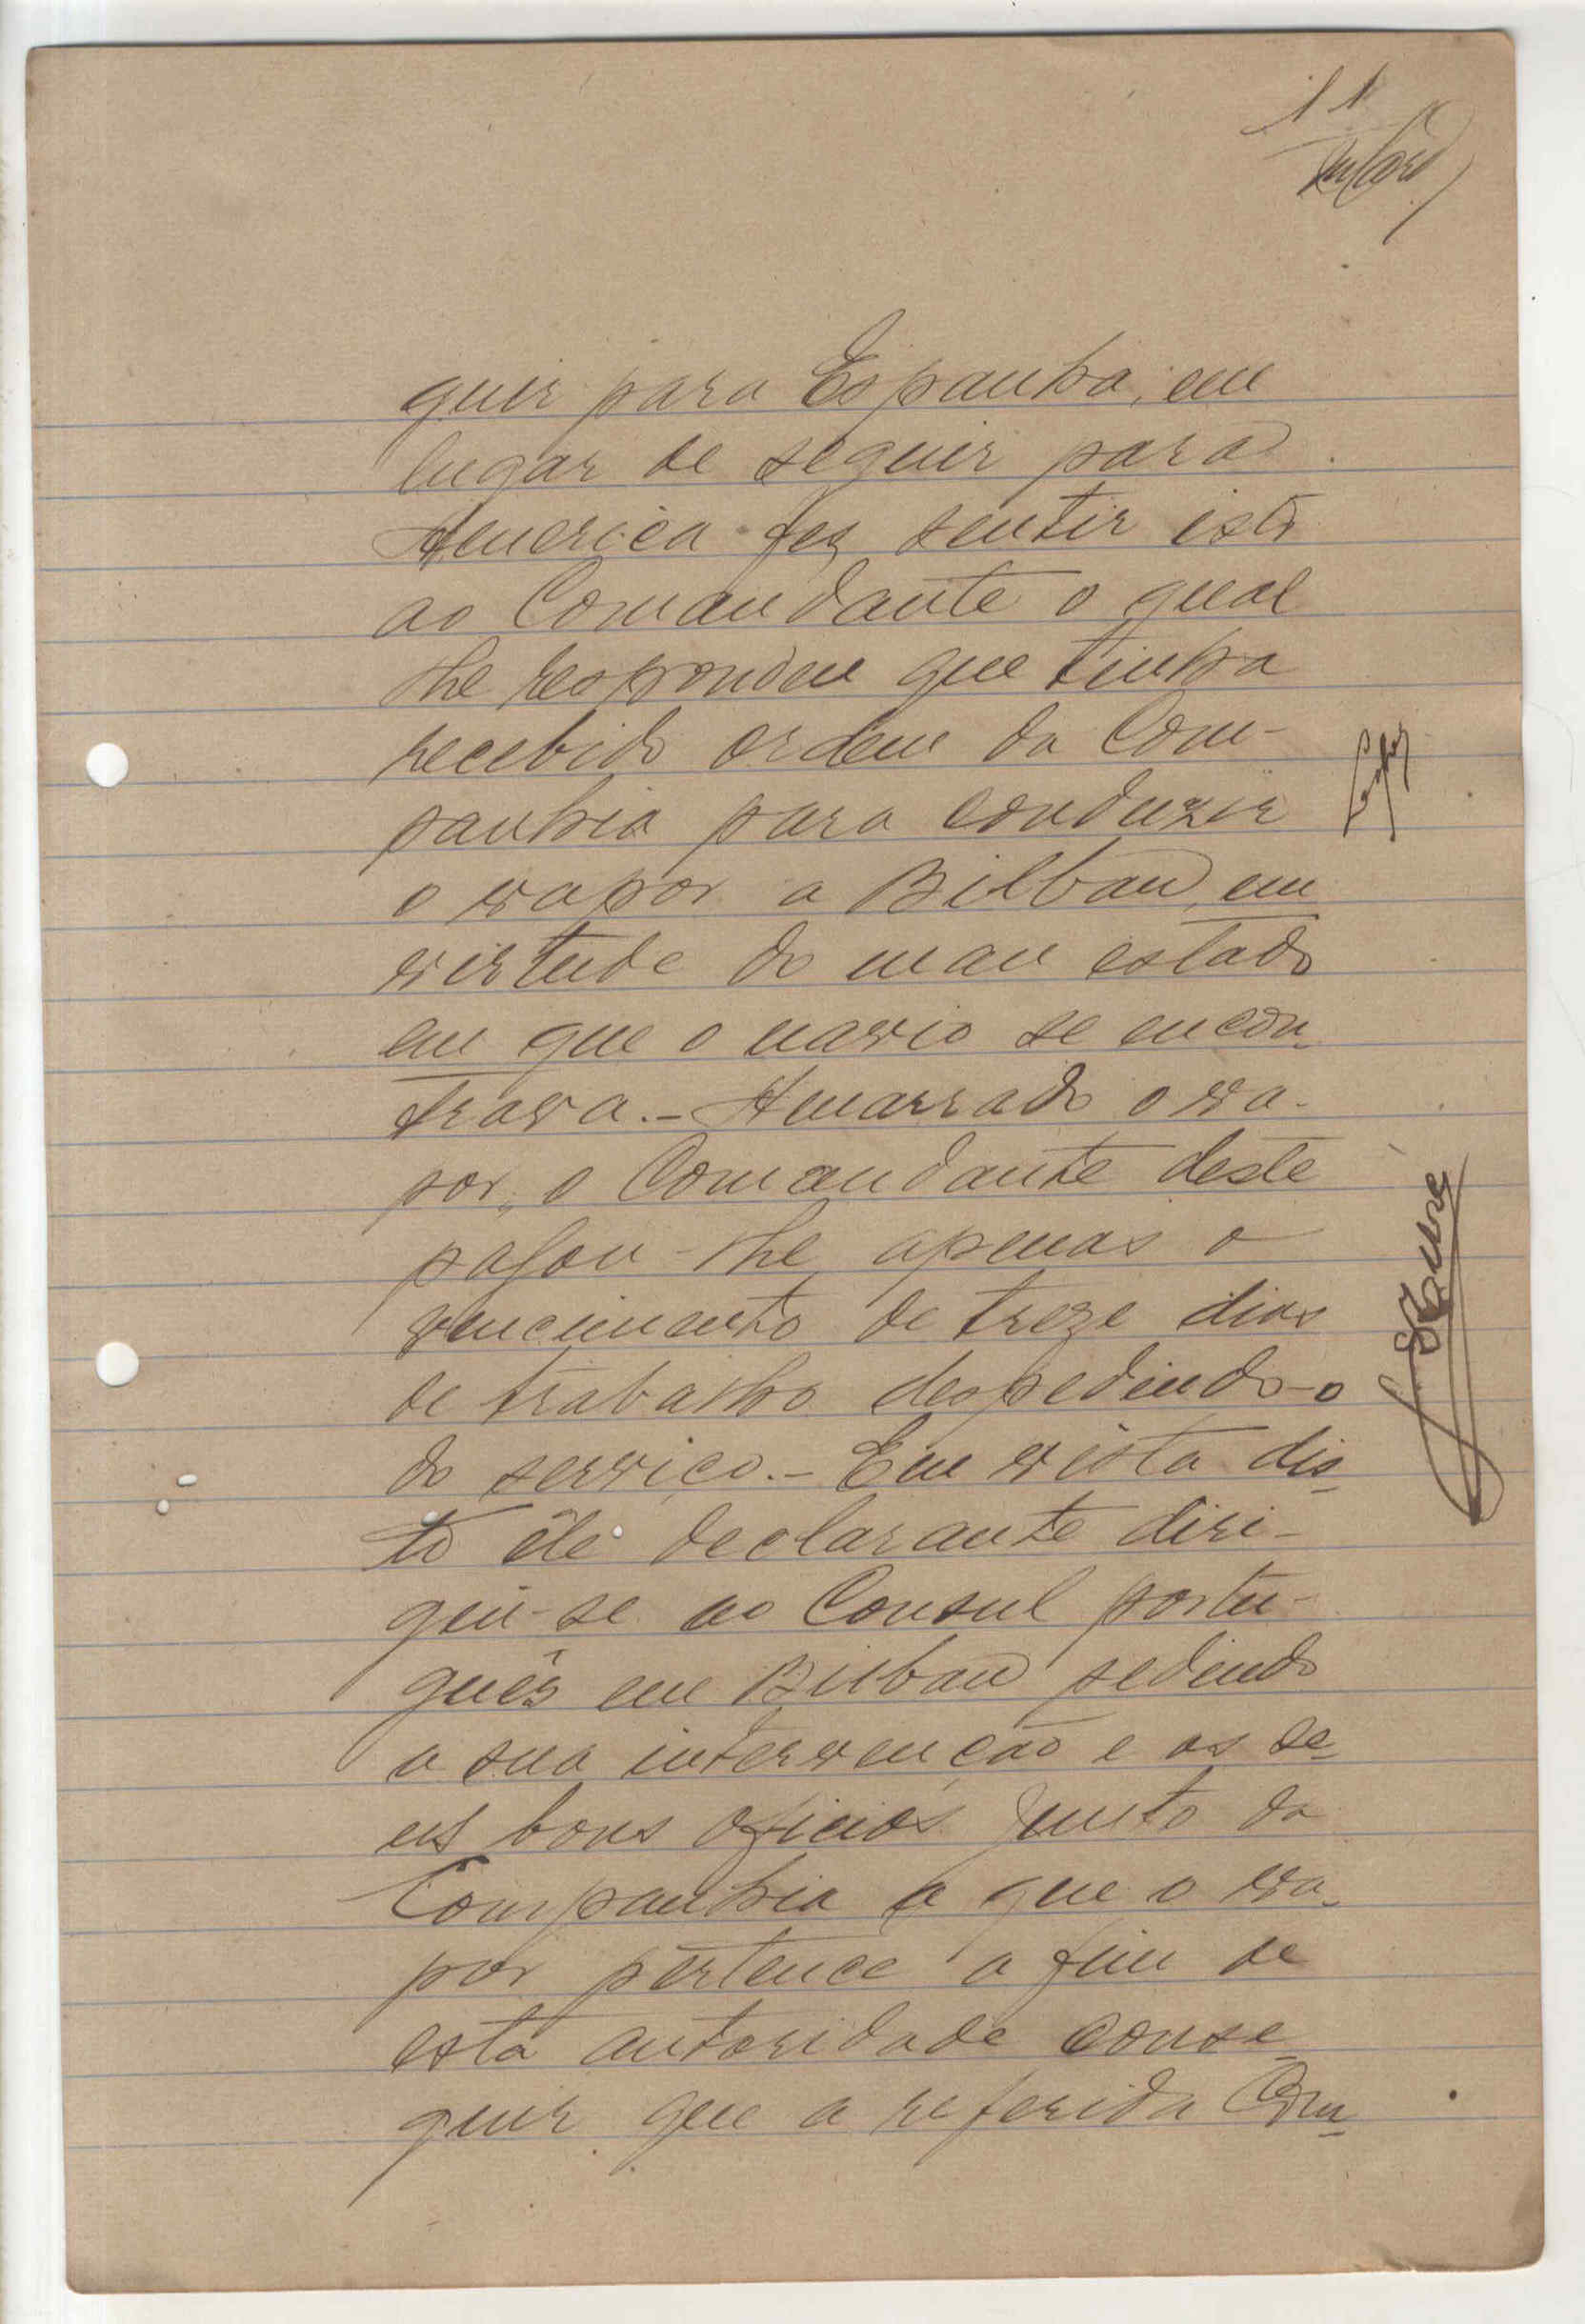 11
guir para Espanha, em
lugar de seguir para
America fez sentir isto
ao Comandante o qual
lhe respondeu que tinha
recebido ordem da Com-
panhia para conduzir
o vapor a Bilbau, em
virtude do mau estado
em que o navio se encon-
trava.- Amarrado o va-
por, o Comandante deste
pagou-lhe apenas o
vencimento de treze dias
de trabalho despedindo-o
do serviço.- Em vista dis-
to êle declarante diri-
giu-se ao Consul portu-
guês em Bilbau pedindo
a sua intervenção e os se-
us bons oficios junto da
Companhia a que o va-
por pertence a fim de
esta autoridade conse-
guir que a referida Com-